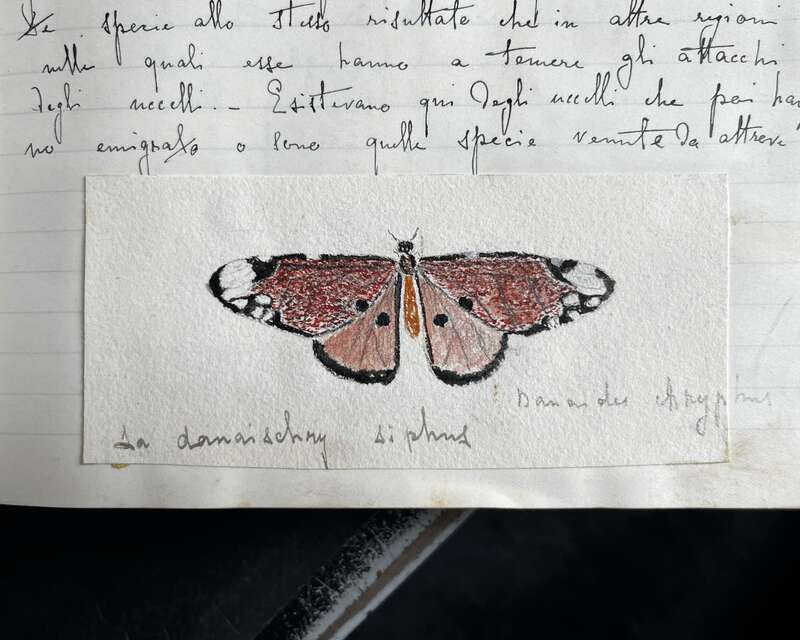 specie allo stesso risultate che in altre regioni
nelle quali esse hanno a temere gli attacchi
degli uccelli. – Esistevano qui degli uccelli che poi han
no emigrato o sono quelle specie venute da altrove
La danaischry siphus
Danaides chryphus